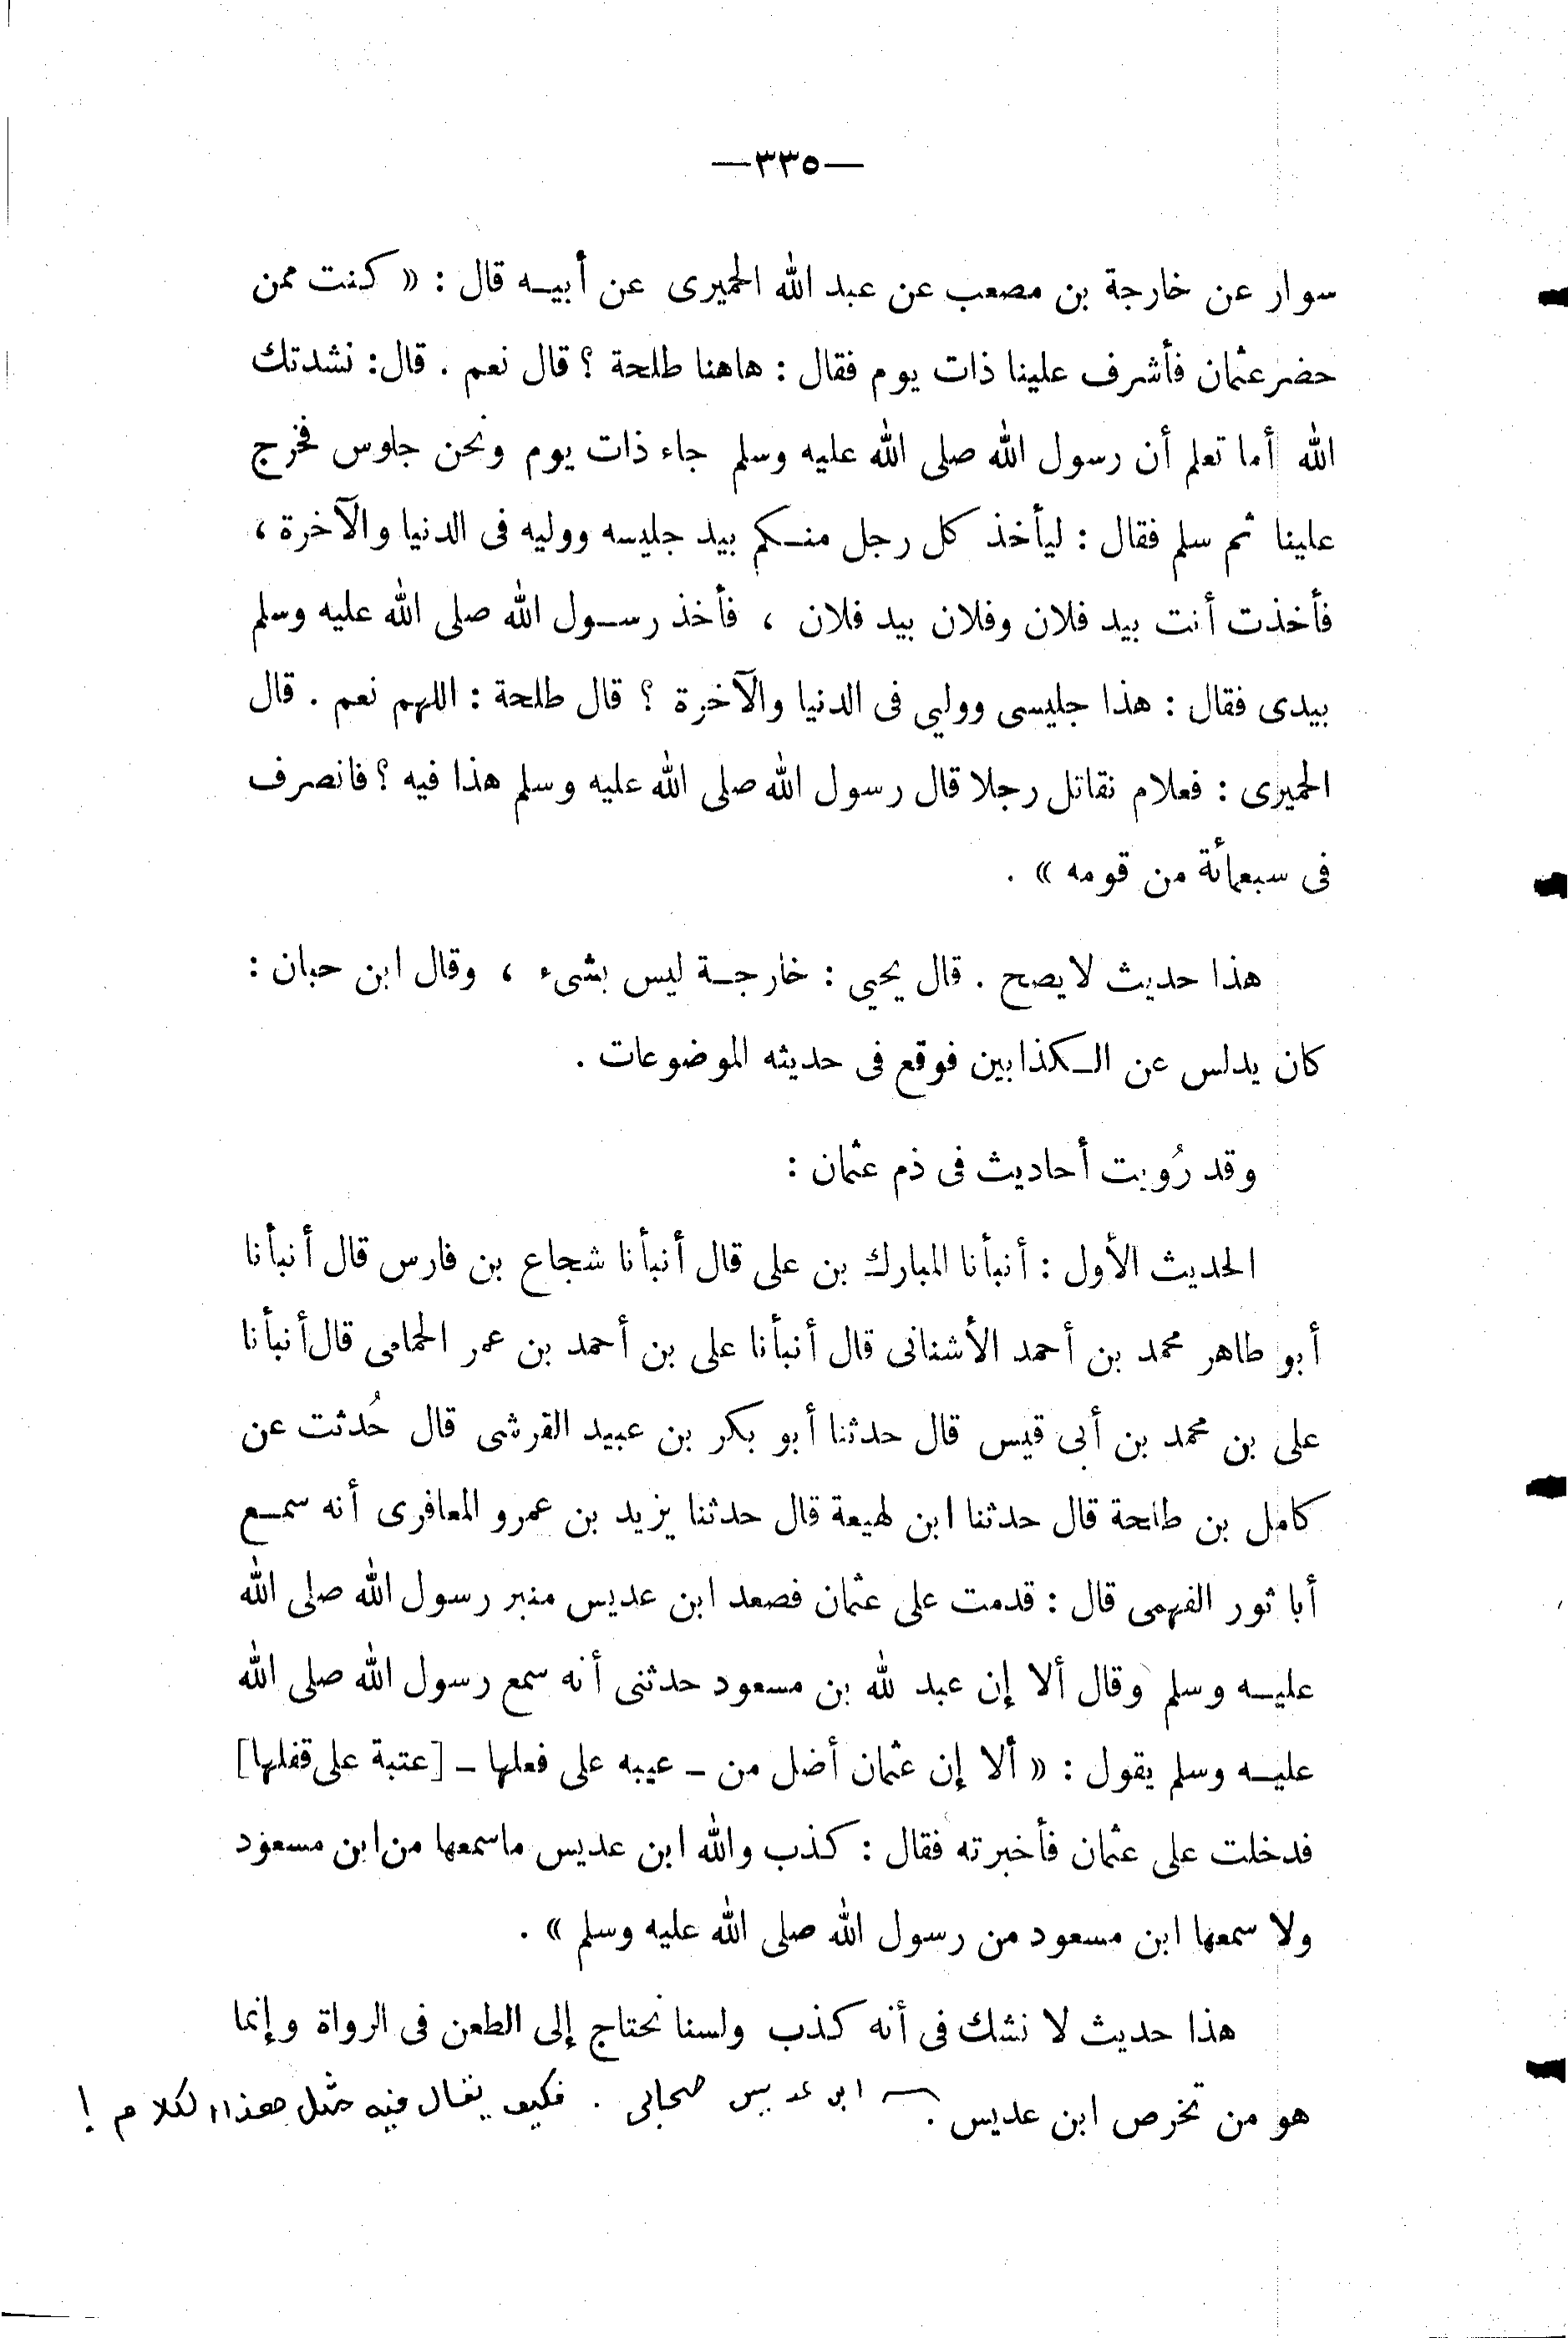 —٣٣٥—
سوار عن خارجة بن مصعب عن عبد الله الحميرى عن أبيــه قال : « كنت ممن
حضر عثمان فأشرف علينا ذات يوم فقال : هاهنا طلحة ؟ قال نعم . قال: نشدتك
الله أما تعلم أن رسول الله صلى الله عليه وسلم جاء ذات يوم ونحن جلوس فخرج
علينا ثم سلم فقال : ليأخذ كل رجل منــكم بيد جليسه ووليه فى الدنيا والآخرة ،
فأخذت أنت بيد فلان وفلان بيد فلان ، فأخذ رســول الله صلى الله عليه وسلم
بيدى فقال : هذا جليسى ووليي فى الدنيا والآخرة ؟ قال طلحة : اللهم نعم . قال
الحميرى : فعلام نقاتل رجلا قال رسول الله صلى الله عليه وسلم هذا فيه ؟ فانصرف
فى سبعمائة من قومه » .
هذا حديث لايصح . قال يحيى : خارجــة ليس بشىء ، وقال ابن حبان :
كان يدلس عن الــكذابين فوقع فى حديثه الموضوعات .
وقد رُويت أحاديث فى ذم عثمان :
الحديث الأول : أنبأنا المبارك بن على قال أنبأنا شجاع بن فارس قال أنبأنا
أبو طاهر محمد بن أحمد الأشنانى قال أنبأنا على بن أحمد بن عمر الحمامى قال أنبأنا
على بن محمد بن أبى قيس قال حدثنا أبو بكر بن عبيد القرشى قال حُدثت عن
كامل بن طلحة قال حدثنا ابن لهيعة قال حدثنا يزيد بن عمرو المعافرى أنه سمــع
أبا ثور الفهمى قال : قدمت على عثمان فصعد ابن عديس منبر رسول الله صلى الله
عليــه وسلم وقال ألا إن عبد لله بن مسعود حدثنى أنه سمع رسول الله صلى الله
عليــه وسلم يقول : « ألا إن عثمان أضل من ـ عيبه على فعلها ـ [عتبة على قفلها]
فدخلت على عثمان فأخبرته فقال : كذب والله ابن عديس ماسمعها من ابن مسعود
ولا سمعها ابن مسعود من رسول الله صلى الله عليه وسلم » .
هذا حديث لا نشك فى أنه كذب ولسنا نحتاج إلى الطعن فى الرواة وإنما
هو من تخرص ابن عديس . ابن عديس صحابى . فكيف يقال فيه مثل هذا الكلام !